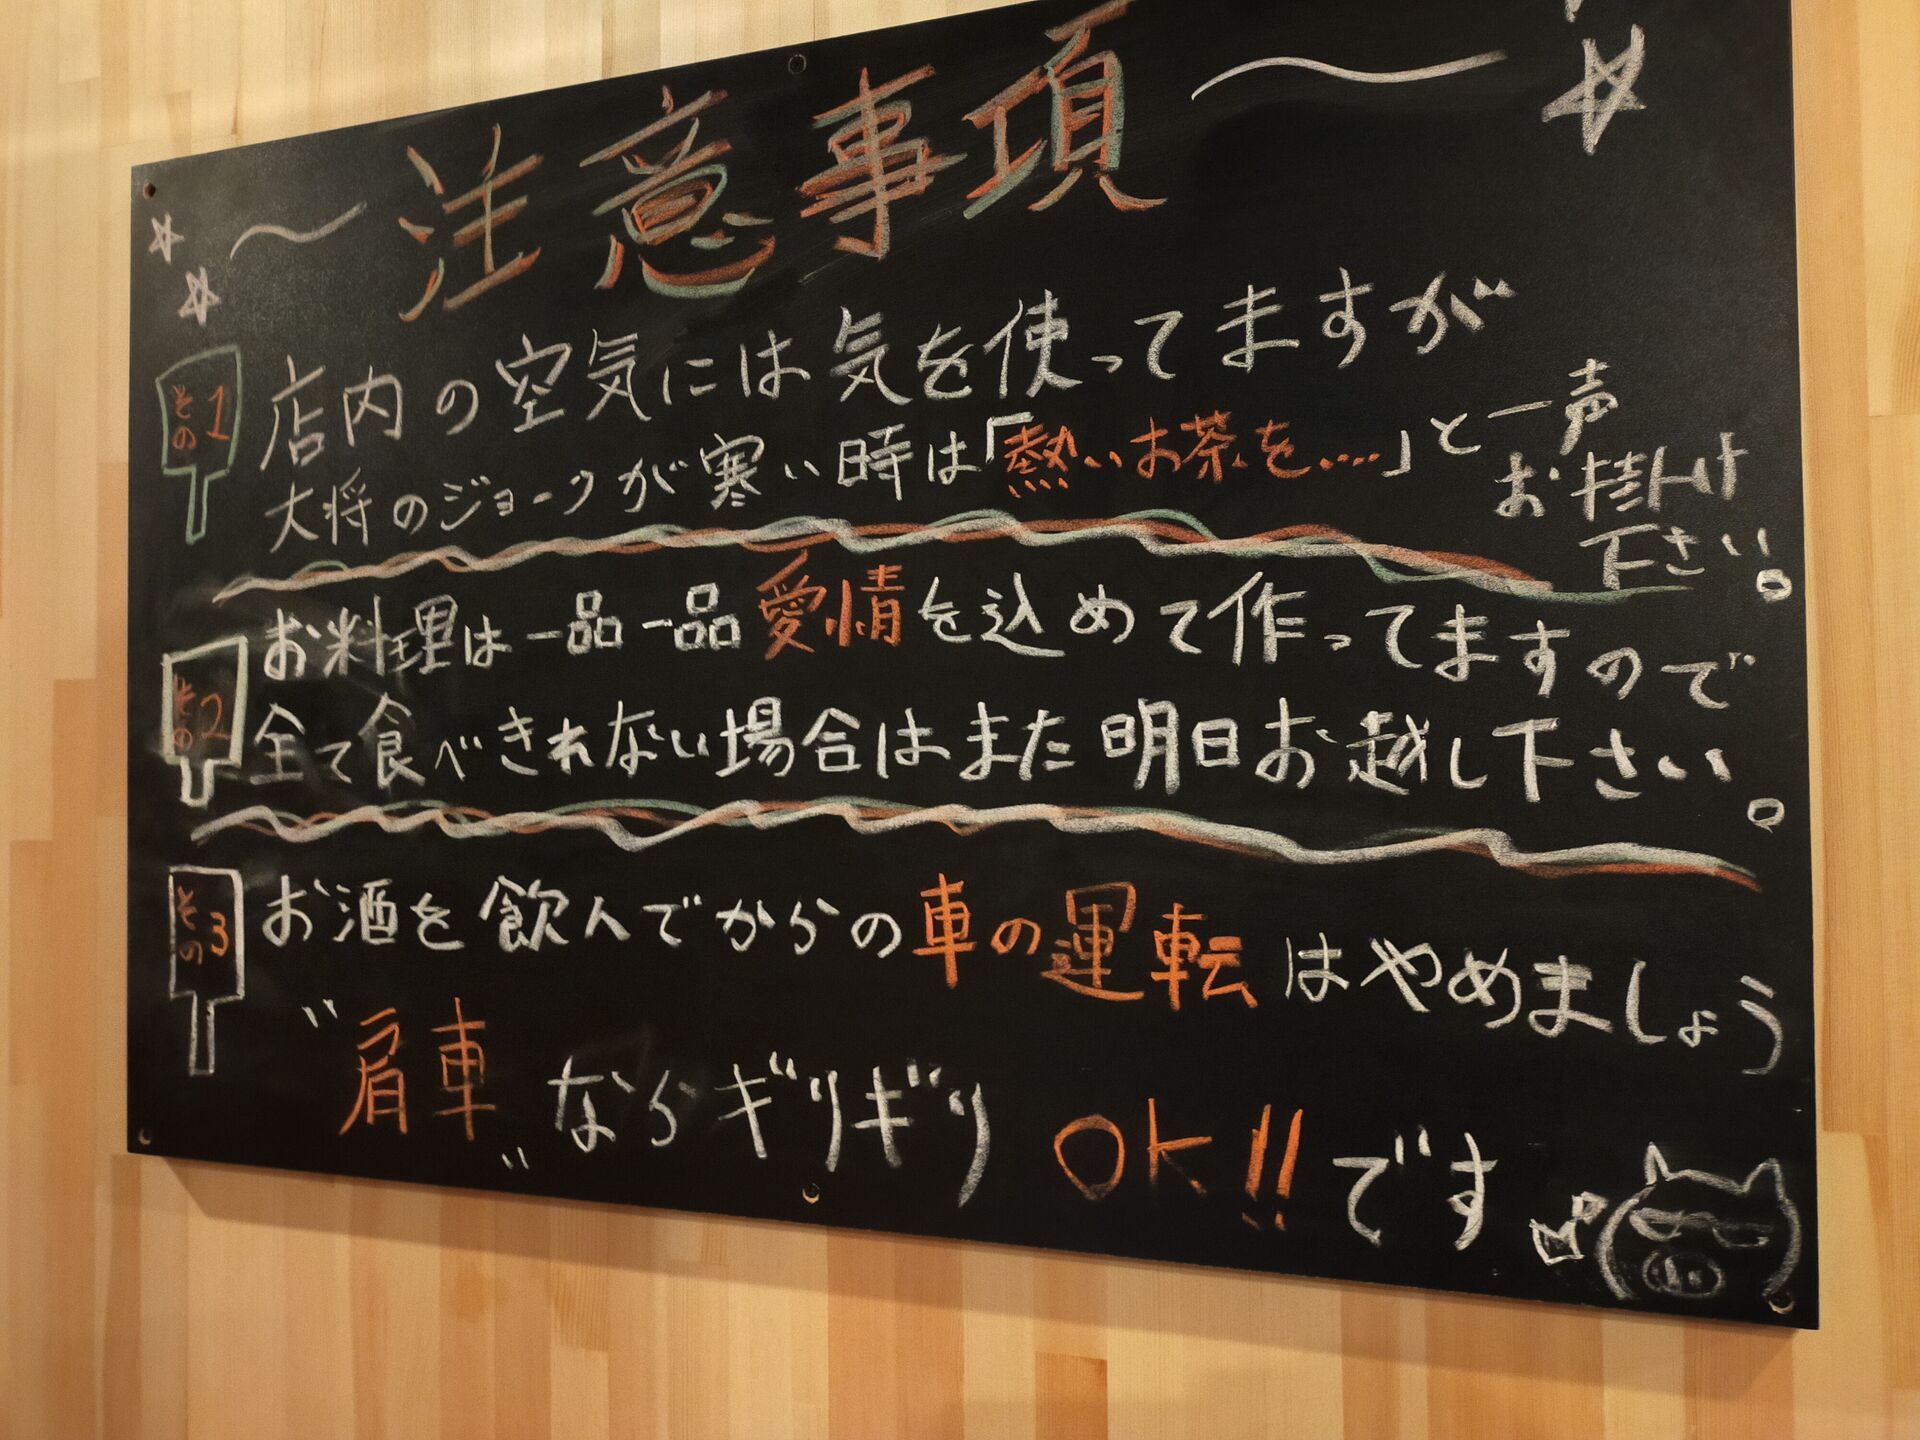 ～注意事項～
その1
店内の空気には気を使ってますが
大将のジョークが寒い時は「熱いお茶を‥‥」と一声
お掛け
下さい。
その2
お料理は一品一品愛情を込めて作ってますので
全て食べきれない場合はまた明日お越し下さい。
その3
お酒を飲んでからの車の運転はやめましょう
〝肩車〟ならギリギリOK!!です